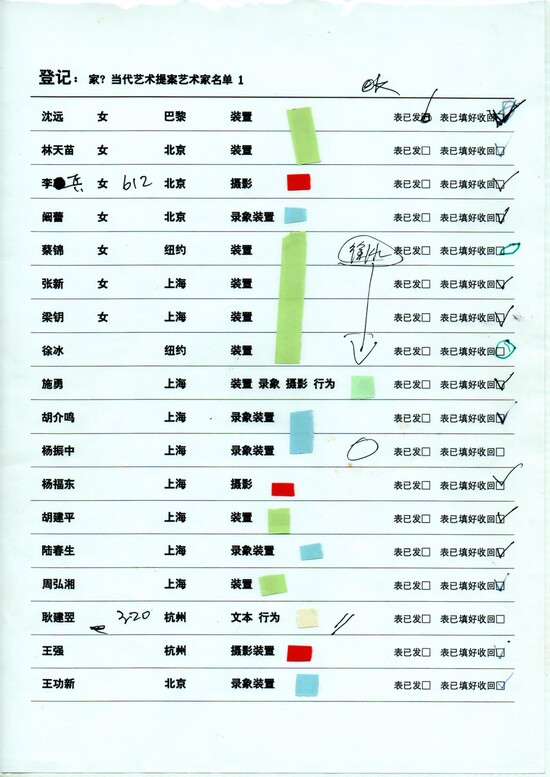 登记：家？当代艺术提案艺术家名单 1
OK
沈远 女 巴黎 装置 表已发□ 表已填好收回□
林天苗 女 北京 装置 表已发□ 表已填好收回□
李 兵 女 612 北京 摄影 表已发□ 表已填好收回□
阚蕾 女 北京 录象装置 表已发□ 表已填好收回□
蔡锦 女 纽约 装置 徐冰 表已发□ 表已填好收回□
张新 女 上海 装置 表已发□ 表已填好收回□
梁钥 女 上海 装置 表已发□ 表已填好收回□
徐冰 纽约 装置 表已发□ 表已填好收回□
施勇 上海 装置 录象 摄影 行为 表已发□ 表已填好收回□
胡介鸣 上海 录象装置 表已发□ 表已填好收回□
杨振中 上海 录象装置 表已发□ 表已填好收回□
杨福东 上海 摄影 表已发□ 表已填好收回□
胡建平 上海 装置 表已发□ 表已填好收回□
陆春生 上海 录象装置 表已发□ 表已填好收回□
周弘湘 上海 装置 表已发□ 表已填好收回□
耿建翌 320 杭州 文本 行为 表已发□ 表已填好收回□
王强 杭州 摄影装置 表已发□ 表已填好收回□
王功新 北京 录象装置 表已发□ 表已填好收回□